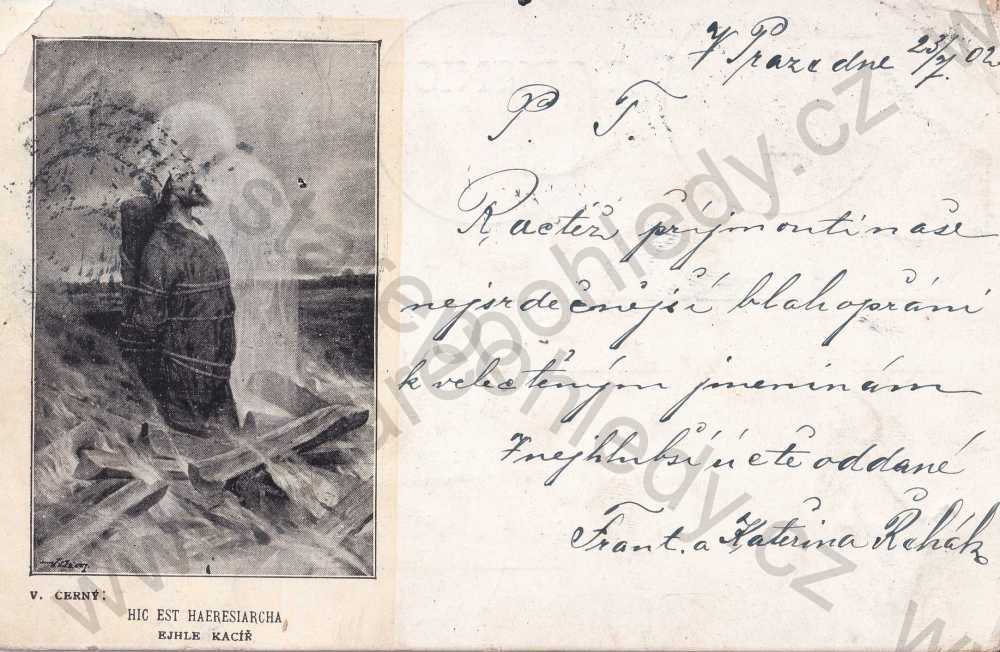 V Praze dne 23/7. 02
P. T.
Račtěž přijmouti naše
nejsrdečnější blahopřání
k velectěným jmeninám
Z nejhlubší úctě oddané
Frant. a Kateřina Řehák
V. ČERNÝ:
HIC EST HAERESIARCHA
EJHLE KACÍŘ
staré pohledy.cz
starepohledy.cz